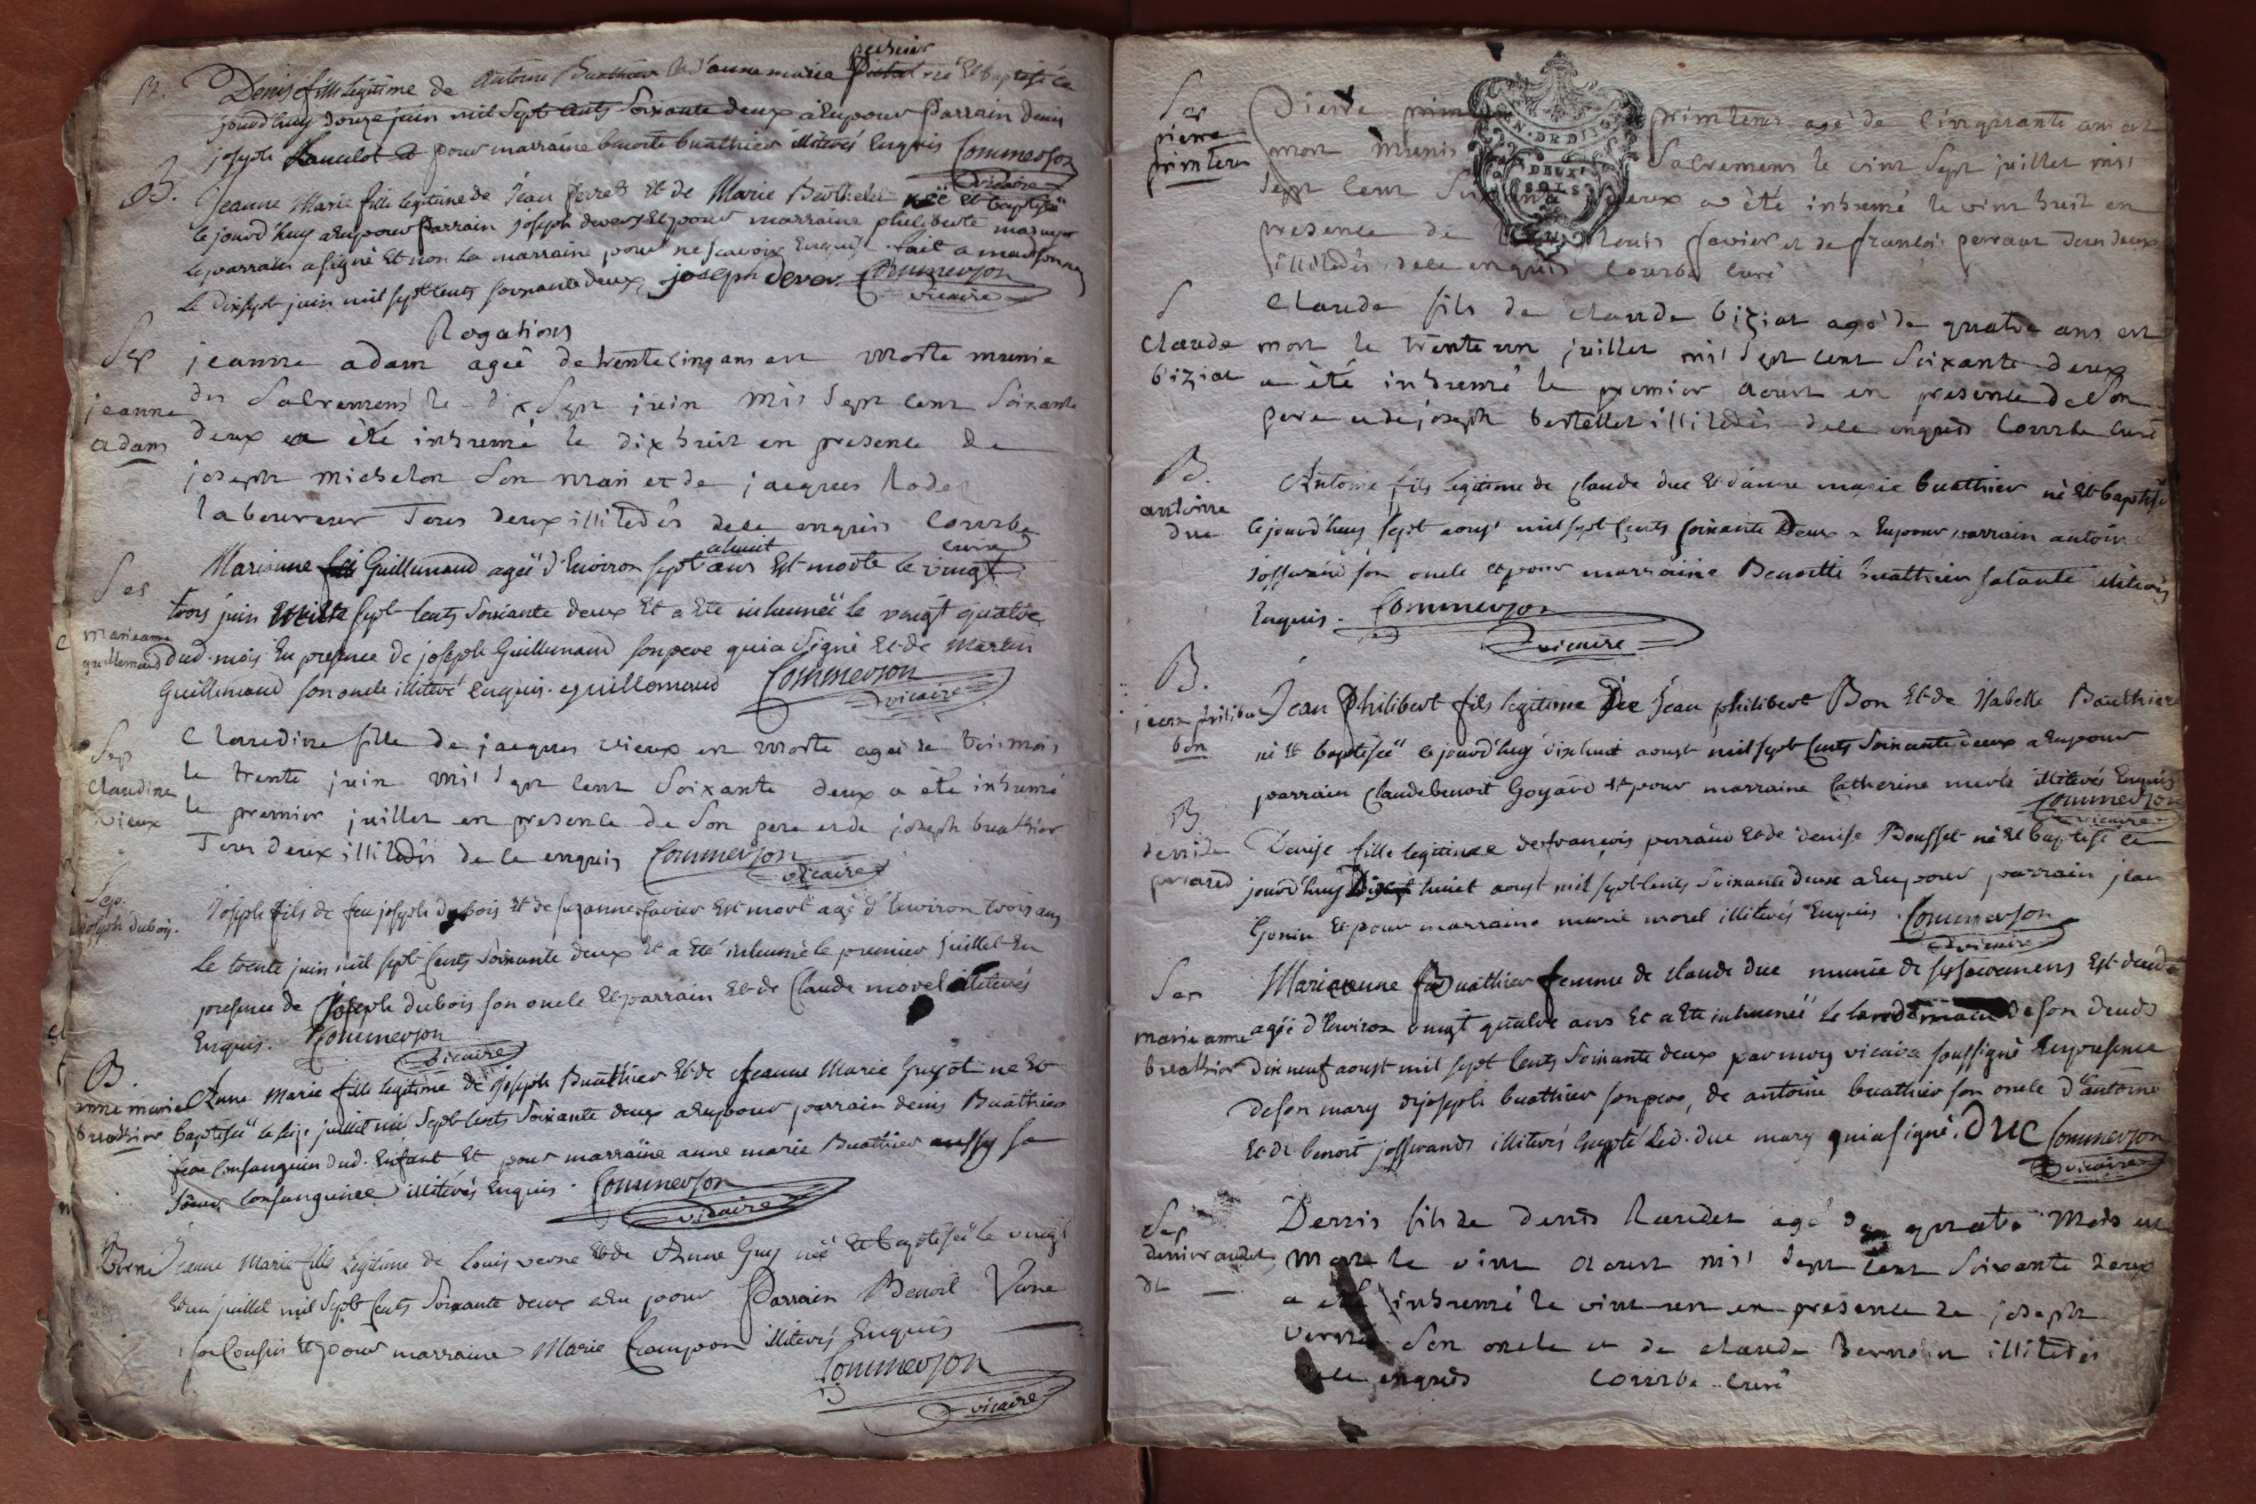 pechoux
B. Denis fils legitime de Antoine Buathier et d'anne marie né et baptisé ce
jourd'huy douze juin mil sept cents soixante deux a eu pour parrain denis
joseph et pour marraine benoite buathier illiterés enquis Commerson
vicaire
B. Jeanne Marie fille legitime de Jean ferret et de Marie Berthelet née et baptisée
le jourd'huy a eu pour parrain joseph devers et pour marraine philiberte
le parrain a signé et non la marraine pour ne scavoir enquis fait a
le dixsept juin mil sept cents soixante deux, joseph dever Commerson
vicaire
Rogations
Sep jeanne adam agée de trente cinq ans est morte munie
des Sacremens le dix sept juin mil sept cent Soixante
jeanne
adam
deux a été inhumé le dix huit en presence de
joseph michelon Son mari et de jacques
laboureur Tous deux illiterés de ce enquis Courbe
curé
Sep Marianne Guillemaud agée d'environ sept a huit ans est morte le vingt
trois juin sept cents soixante deux et a eté inhumée le vingt quatre
marieanne
guillemaud
dud. mois en presence de joseph Guillemaud son pere qui a signé et de Martin
Guillemaud son oncle illiteré enquis. guillemaud Commerson
vicaire
Sep Claudine fille de jacques vieux est morte agée de trois mois
claudine
vieux
le trente juin mil sept cent Soixante deux a été inhumé
le premier juillet en presence de Son pere et de joseph buathier
Tous deux illiterés de ce enquis Commerson
vicaire
Sep.
joseph dubois.
Joseph fils de feu joseph dubois et de suzanne favier est mort agé d'environ trois ans
le trente juin mil sept cents soixante deux et a eté inhumé le premier juillet en
presence de joseph dubois son oncle et parrain et de Claude morel illiterés
enquis. Commerson
vicaire
B.
anne marie
buathier
Anne Marie fille legitime de joseph Buathier et de Jeanne Marie Guyot née et
baptisée le juillet mil sept cents soixante deux a eu pour parrain denis Buathier
frere consanguin dud. enfant et pour marraine anne marie Buathier aussy sa
soeur consanguinee illiterés enquis. Commerson
vicaire
B verne Jeanne Marie fille legitime de Louis verne et de Anne Guy née et baptisée le vingt
et un juillet mil sept cents soixante deux a eu pour Parrain Benoit Verne
son Cousin et pour marraine Marie Campon illiterés enquis
Commerson
vicaire
Sep
pierre
printems
Pierre printems agé de Cinquante ans est
mort munis Sacremens le vint sept juillet mil
sept cent Soixante deux a été inhumé le vint huit en
presence de Louis favier et de francois perraut Tous deux
illiterés de ce enquis Courbe curé
S
Claude
biziat
Claude fils de claude biziat agé de quatre ans est
mort le trente un juillet mil sept cent Soixante deux
a été inhumé le premier aoust en presence de Son
pere et de joseph bertellet illiterés de ce enquis Courbe curé
B.
antoine
duc
Antoine fils legitime de Claude duc et d'anne marie buathier né et baptisé
le jourd'huy sept aoust mil sept cents soixante Deux a eu pour parrain antoine
josserand son oncle et pour marraine Benoitte buathier sa tante illiterés
enquis. Commerson
vicaire
B.
jean philibert
bon
Jean Philibert fils legitime De Jean philibert Bon et de Isabelle Bauthier
né et baptisé le jourd'huy dixhuit aoust mil sept cents soixante deux a eu pour
parrain Claude benoit Goyard et pour marraine Catherine merle illiterés enquis
Commerson
vicaire
B
denise
perraud
Denise fille legitime de francois perraud et de denise Bousset né et baptisé ce
jourd'huy Dix huict aoust mil sept cents soixante deux a eu pour parrain jean
Gonin et pour marraine marie morel illiterés enquis. Commerson
vicaire
Sep
marie anne
buathier
Marieanne Buathier femme de claude duc munie de ses sacremens est decedée
agée d'environ vingt quatre ans et a eté inhumée le landemain de son deces
dix neuf aoust mil sept cents soixante deux par moy vicaire soussigné en presence
de son mary de joseph buathier son pere, de antoine buathier son oncle d'antoine
et de benoit josserands illiterés excepté led. duc mary qui a signé. DUC Commerson
vicaire
Sep
denis raudet
Denis fils de denis Raudet agé de quatre mois est
mort le vint aoust mil sept cent Soixante deux
a été inhumé le vint un en presence de joseph
verne Son oncle et de claude Bernolin illiterés
de ce enquis Courbe curé